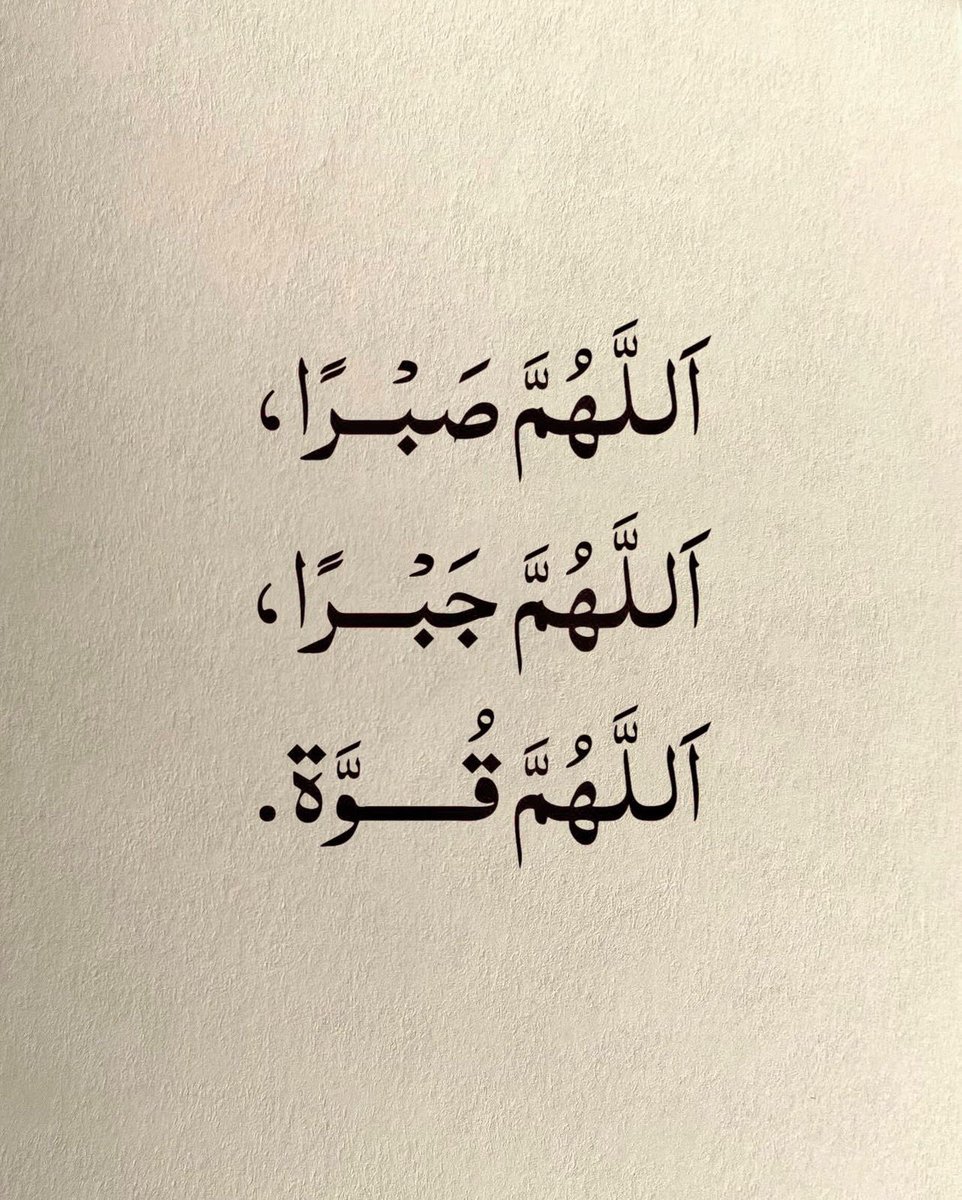 اَللَّهُمَّ صَبْـــرًا،
اَللَّهُمَّ جَبْـــرًا،
اَللَّهُمَّ قُـــوَّة.